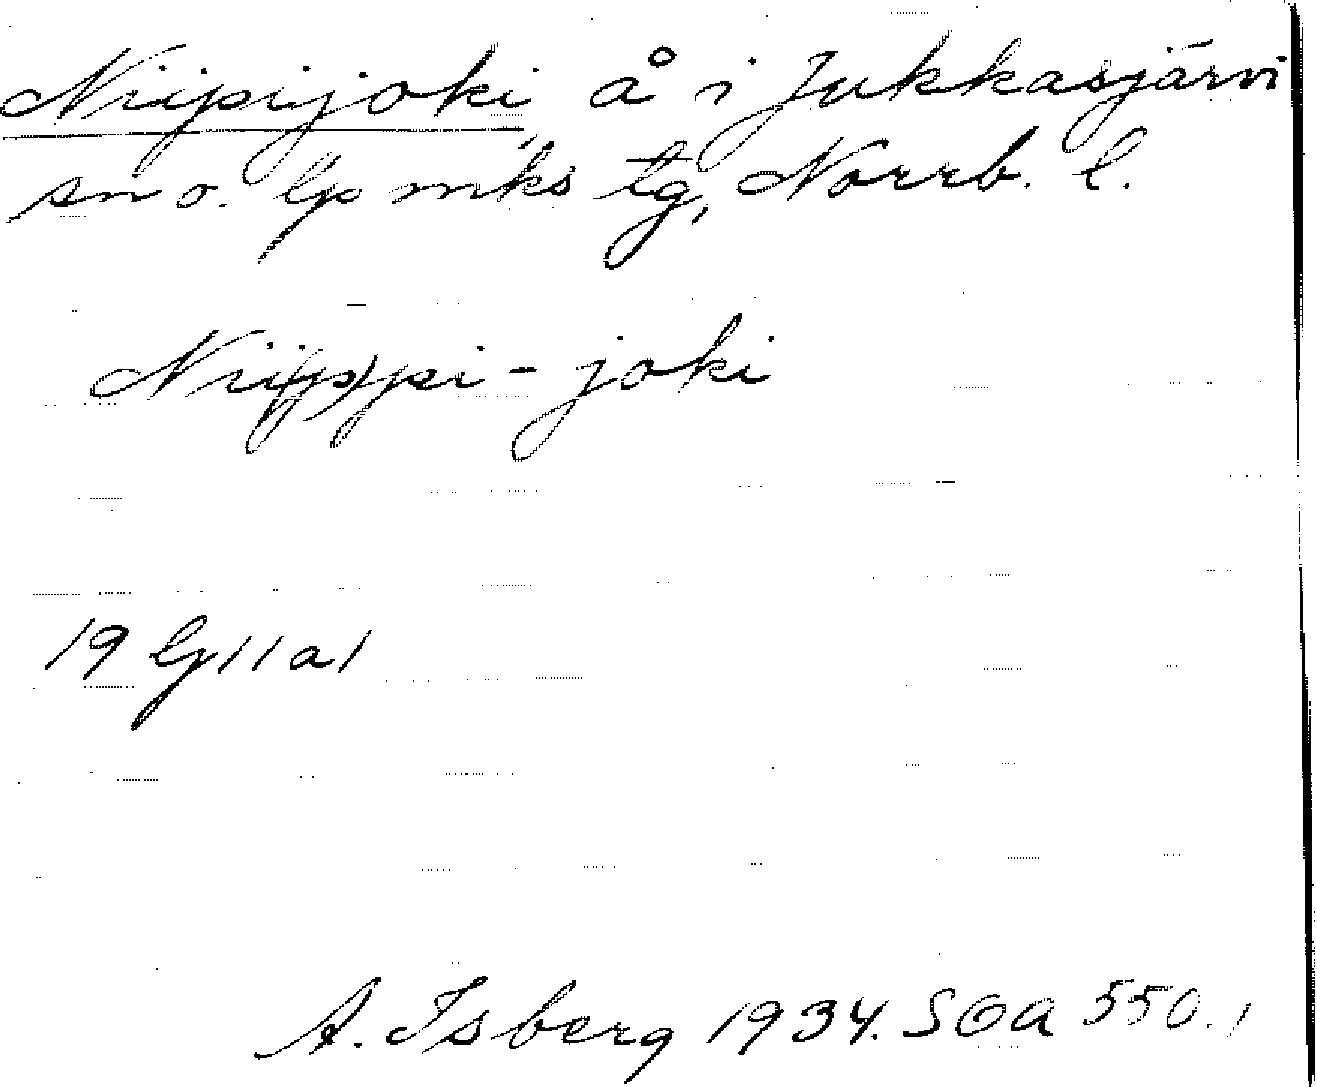 Niipijoki, å i Jukkasjärvi
sn o. lpmks tg, Norrb. l.
Nii(p)pi-joki
19 G 11 a 1
A. Isberg 1934. SOA 550.1